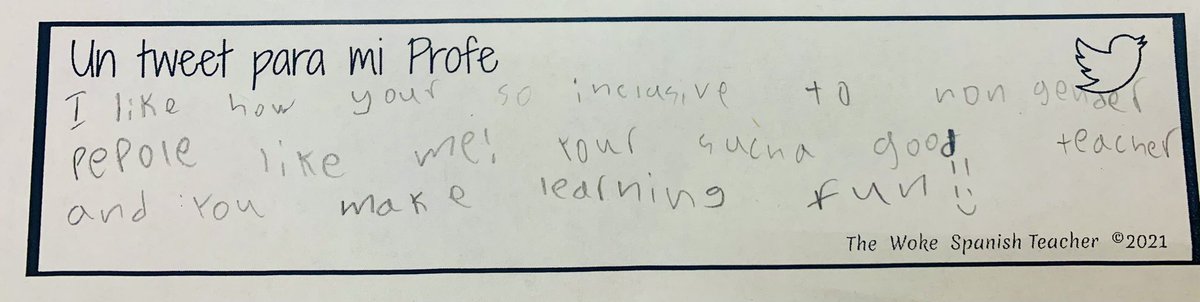 Un tweet para mi Profe
I like how your so inclusive to non gender
pepole like me! Your sucha good teacher
and you make learning fun!!
The Woke Spanish Teacher ©2021